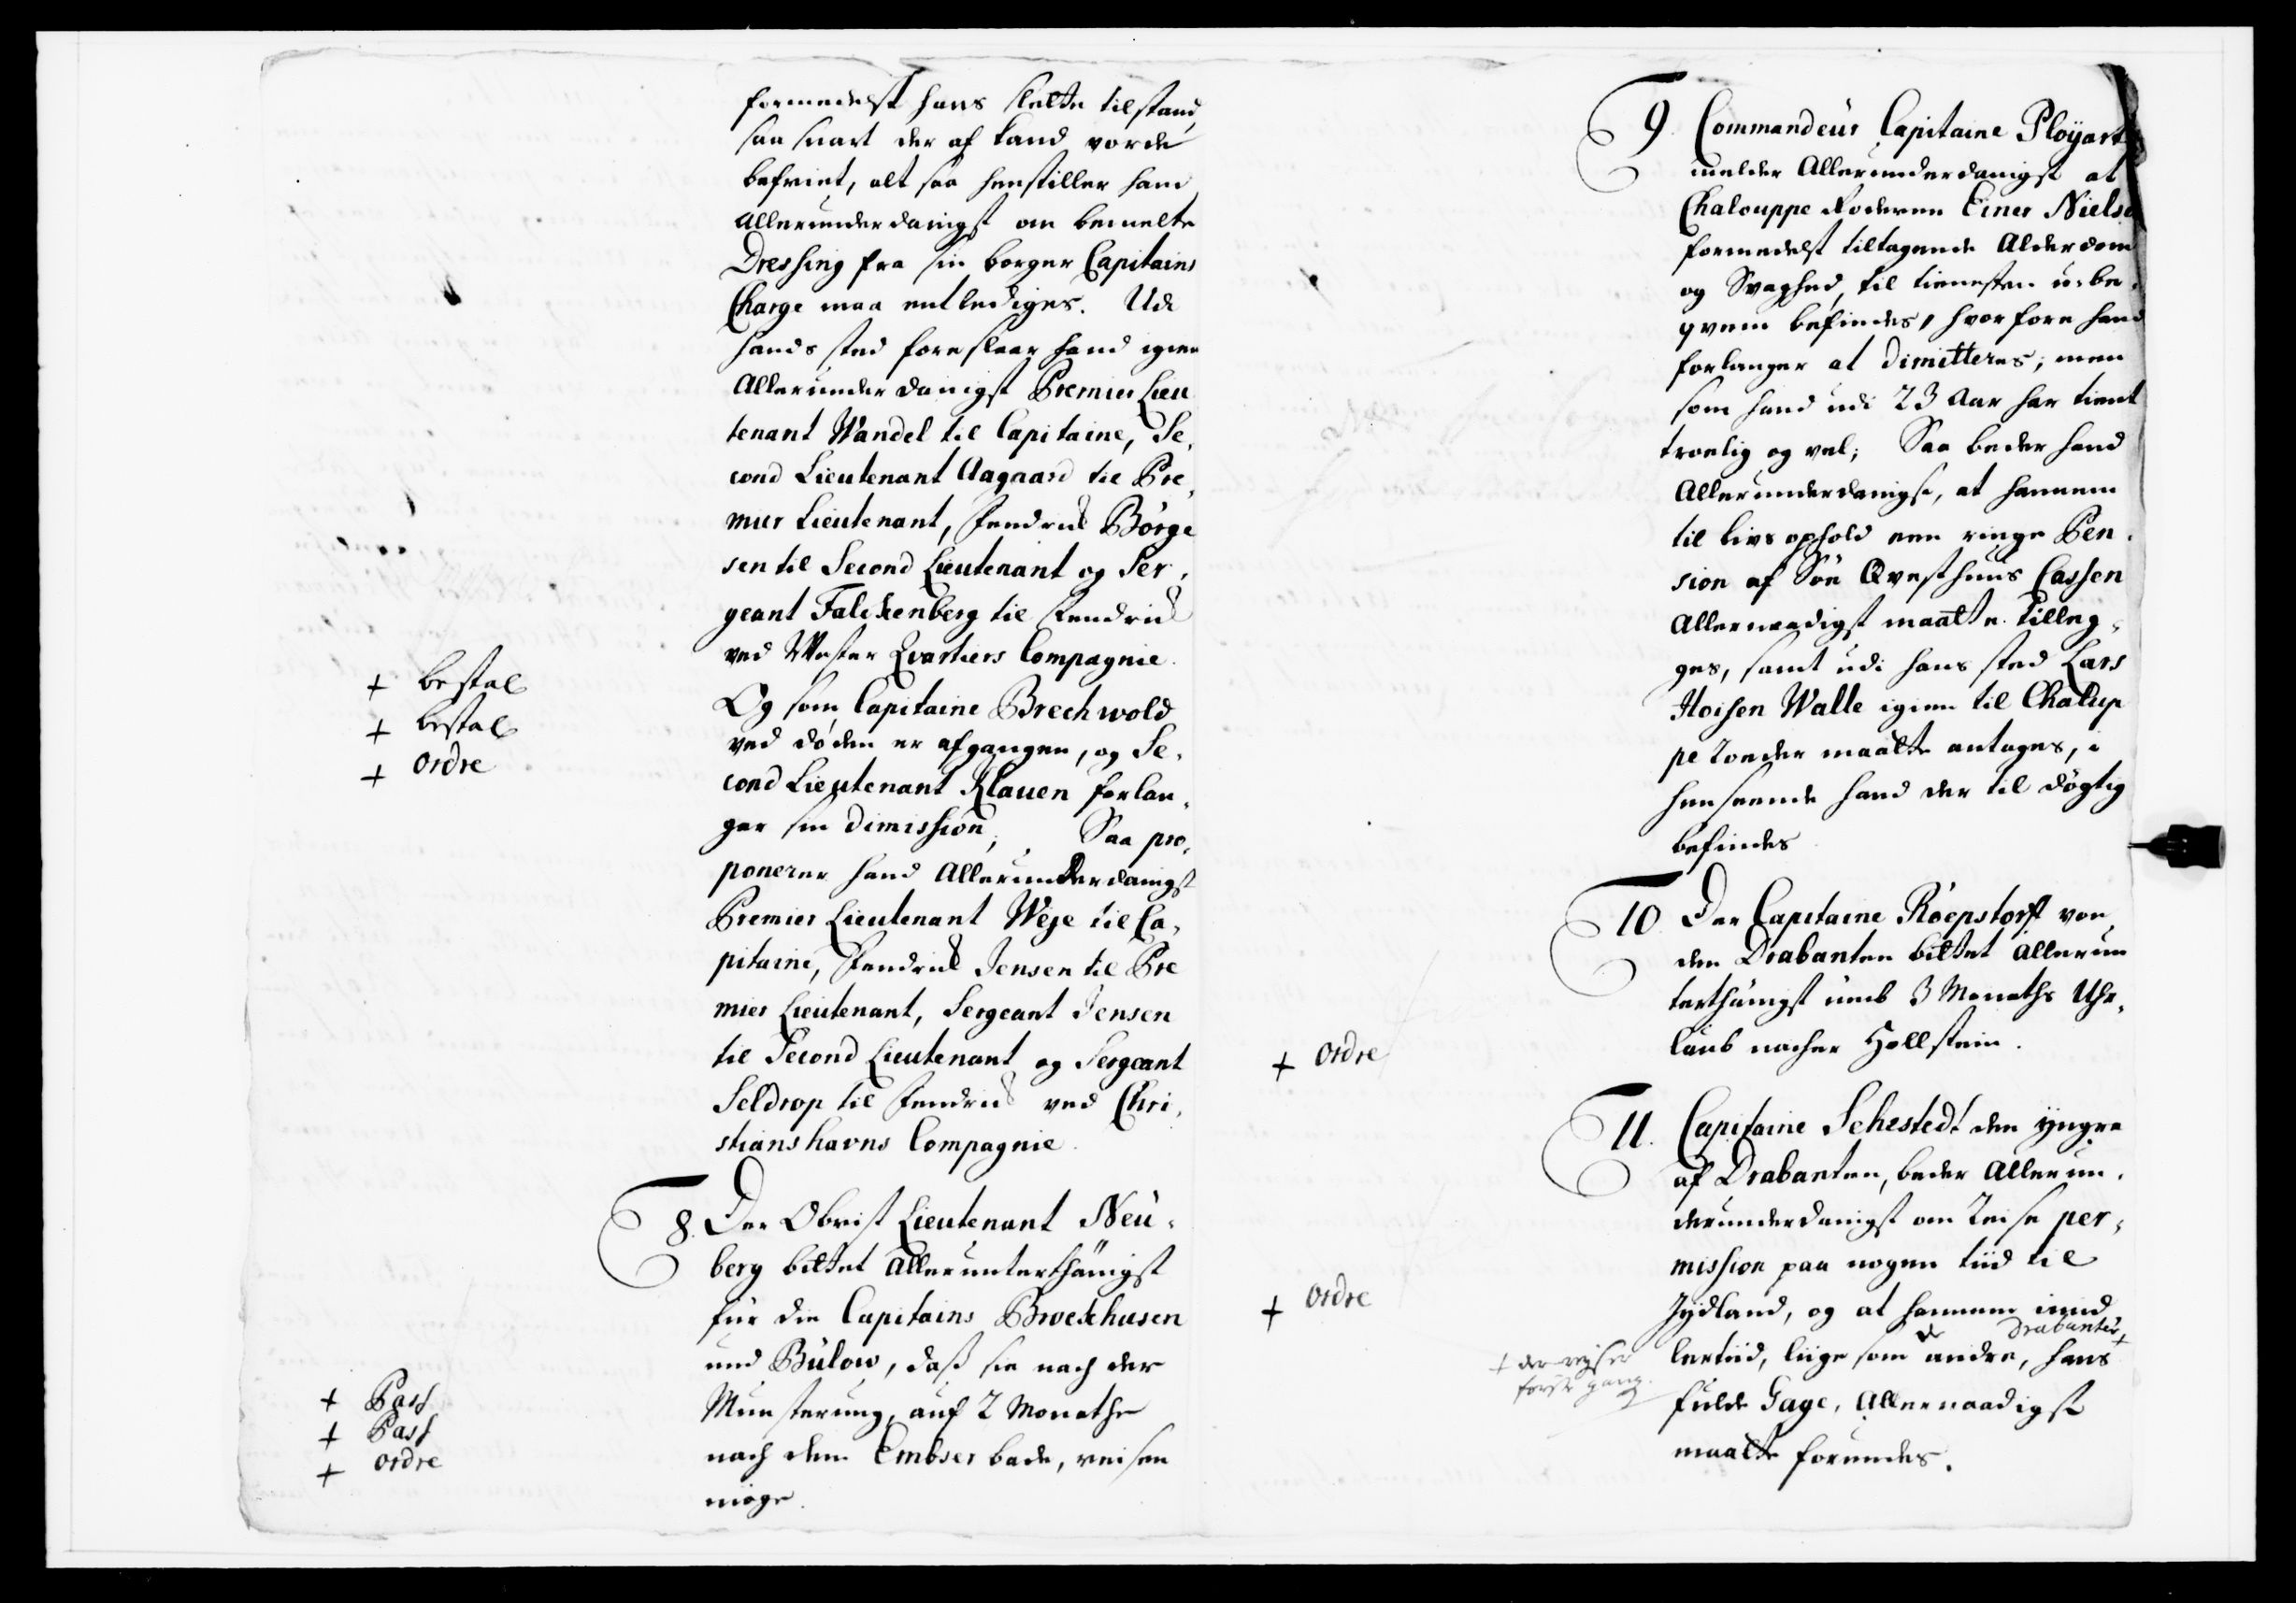 formedelst hans slette tilstand,
saa snart der af kand vorde
befriet, alt saa henstiller hand
allerunderdanigst om bemelte
Dresсhing fra sin borger Capitains
Charge maa entlediges. Udi
hands sted foreslaar hand igien
Allerunderdanigst Premier Lieu
tenant Wandel til Capitaine, Se¬
cond Lieutenant Aagaard til Pre¬
mier Lieutenant, Fendrick Börge
sen til Second Lieutenant og Ser¬
geant Falckenberg til Fendrick
ved Wester Qvartiers Compagnie.
+ bestal
+ bestal
+ ordre
Og som Capitaine Brechwold
ved döden er afgangen, og Se¬
cond Lieutenant Klauen forlan¬
ger sin dimission; Saa pro¬
ponerer hand Allerunderdanigst
Premier Lieutenant Weje til Ca¬
pitaine, Fendrick Jensen til Pre
mier Lieutenant, Sergeant Jensen
til Second Lieutenant og Sergeant
Seldrop til Fendrick ved Chri¬
stianshavns Compagnie.
8. Der Obrist Lieutenant Neu¬
berg bittet Allerunterthänigst
für die Capitains Brockhusen
und Bülow, daß sie nach der
Munsterung, auf 2 Monathe
nach dem Embser bade, reisen
möge.
+ Pass
+ Pass
+ ordre
9. Commandeur Capitaine Ployart
melder Allerunderdanigst at
Chalouppe Roderen Einer Nielse
formedelst tiltagende Alderdom
og Svaghed, til tienesten u-be¬
qvem befindes, hvorfore hand
forlanger at dimitteres; men
som hand udi 23 Aar har tient
troelig og vel; Saa beder hand
Allerunderdanigst, at hannem
til livs ophold een ringe Pen¬
sion af Söe Qvesthuus Cassen
Allernaadigst maatte tilleg¬
ges, samt udi hans sted Lars
Hoisen Walle igien til Chalup
pe Roeder maatte antages, i
henseende hand der til dögtig
befindes
10. Der Capitaine Röepstorff von
den Drabanten bittet Allerun
terthänigst umb 3 Monaths Uhr¬
laub nacher Hollstein.
+ ordre
11. Capitaine Sehestedt den yngre
af Drabanten, beder Allerun¬
derunderdanigst om Reise per¬
mission paa nogen tiid til
Jydland, og at hannem imid
lertiid, liige som de andre Drabanter, + hans
fulde Gage, Allernaadigst
maatte forundes.
+ ordre
+ der rejser
förste gang.